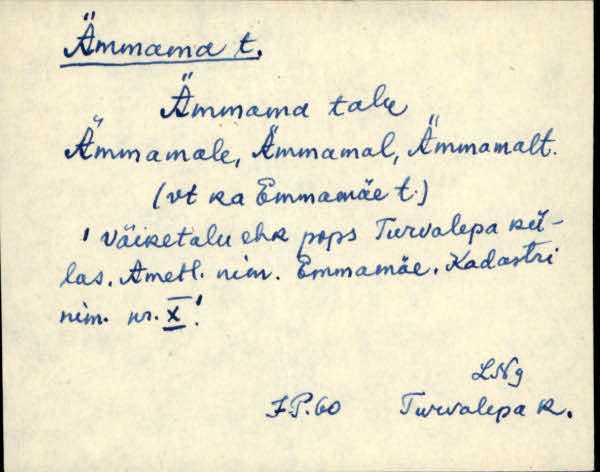 Ämmama t.
Ämmama talu
Ämmamale, Ämmamal, Ämmamalt.
(vt ka Emmamäe t.)
' Väiketalu ehk pops Turvalepa kü-
las. Ametl. nim. Emmamäe. Kadastri
nim. nr. X!
LNg
J.P. 60 Turvalepa k.